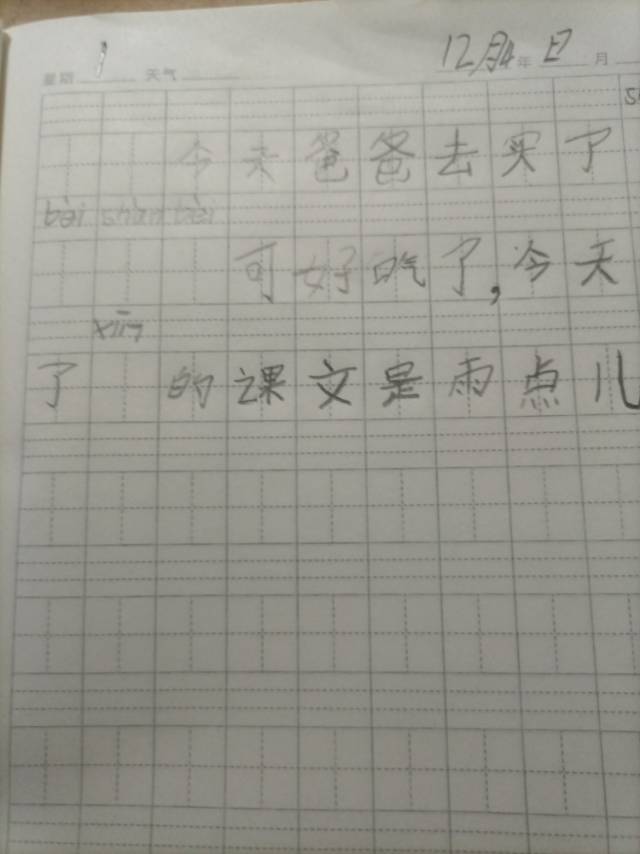 星期 1 天气 12月4年 日 月
今天爸爸去买了
bèi shàn bèi
可好吃了,今天
xīn
了 的课文是雨点儿